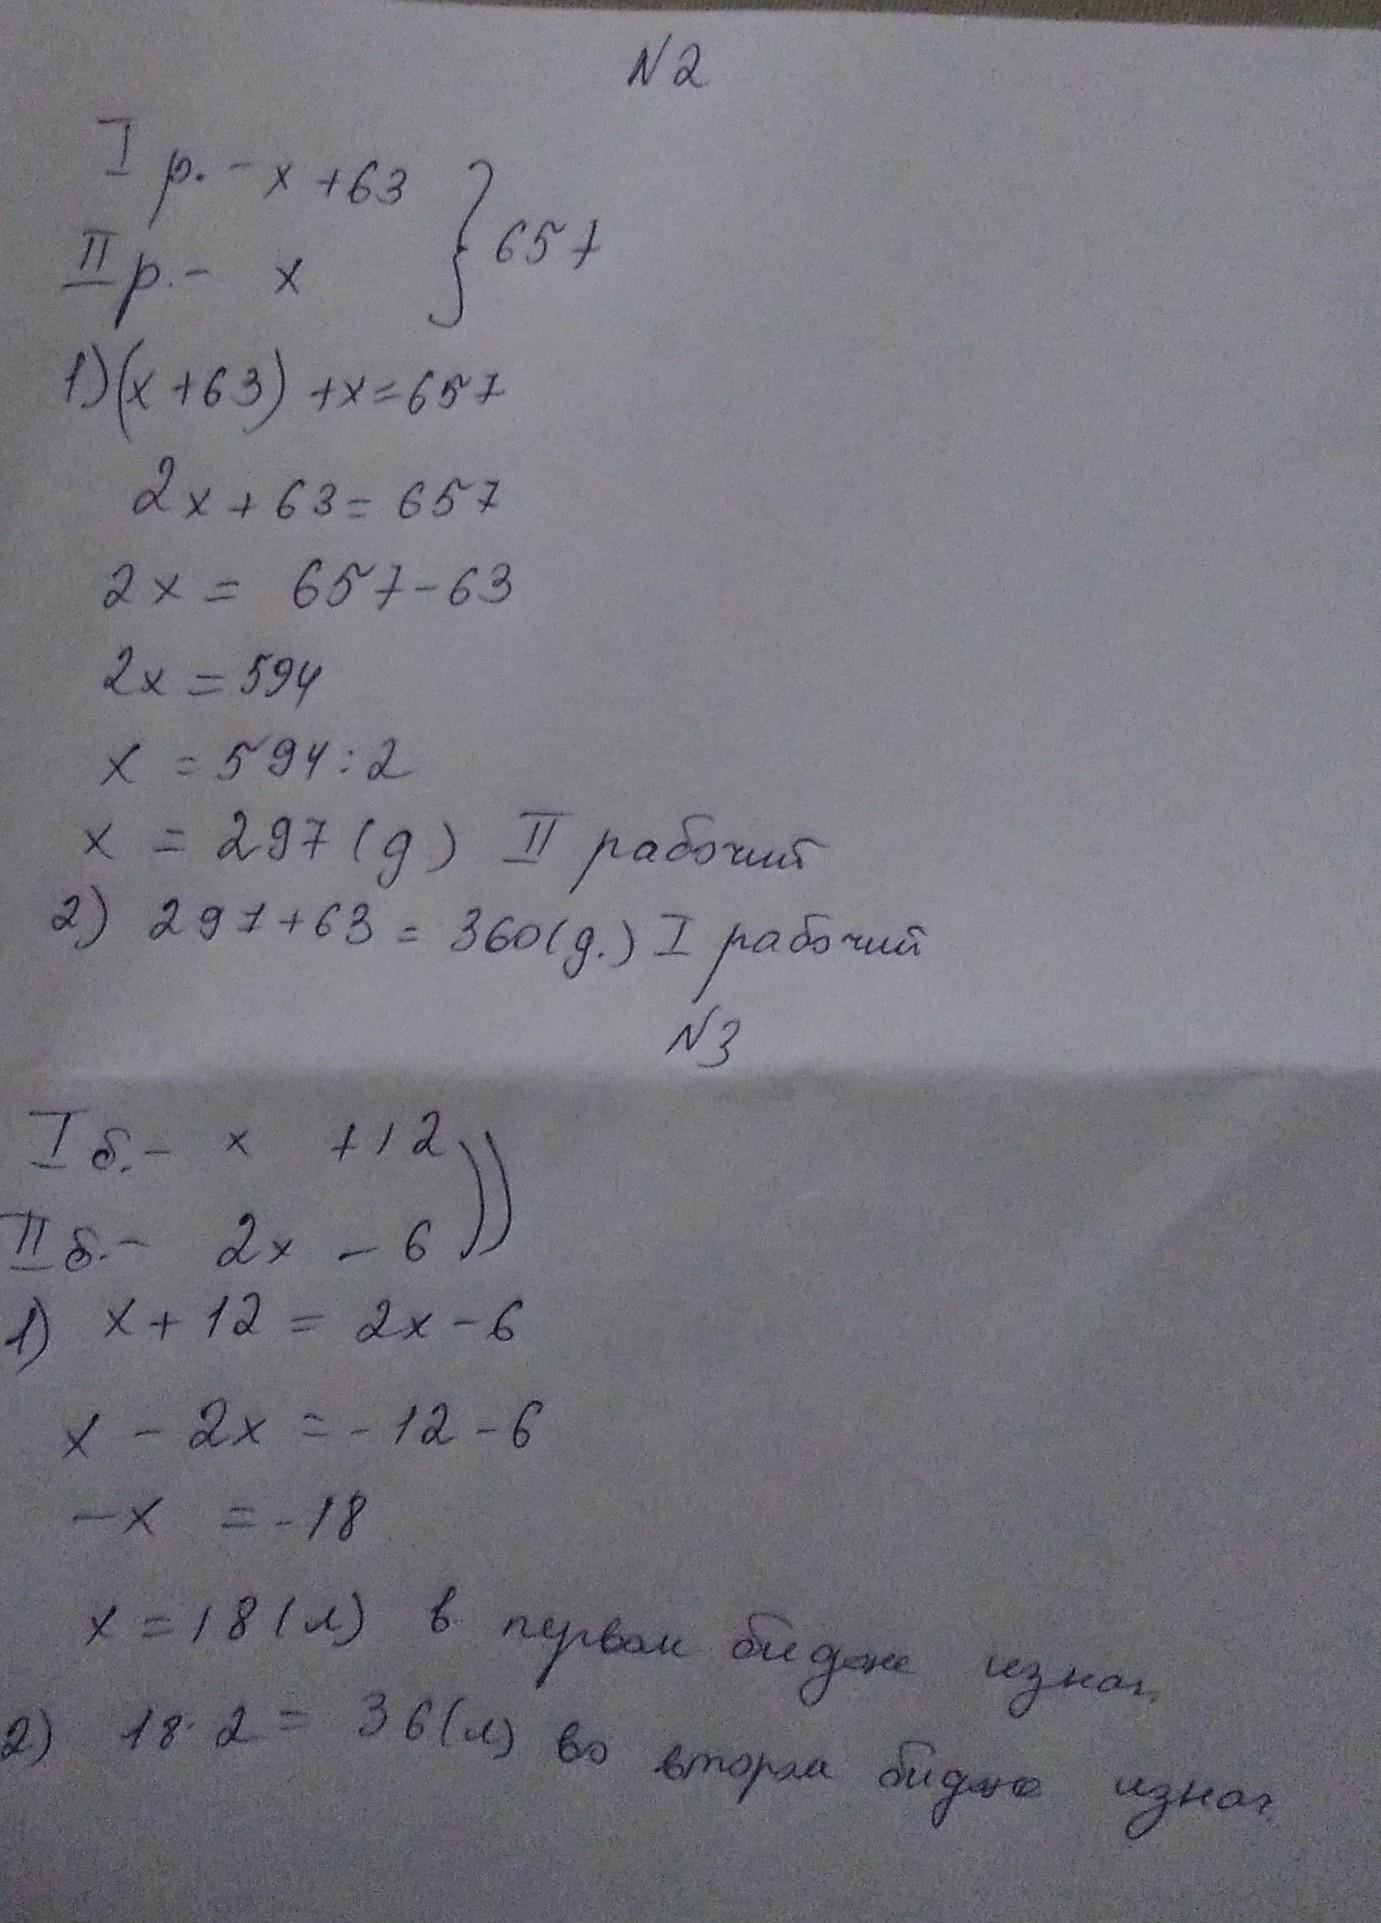 N2
I р. - x + 63
II р. - x
} 657
1) (x + 63) + x = 657
2x + 63 = 657
2x = 657 - 63
2x = 594
x = 594 : 2
x = 297 (д) II рабочий
2) 297 + 63 = 360 (д.) I рабочий
N3
I б. - x + 12
II б. - 2x - 6
1) x + 12 = 2x - 6
x - 2x = -12 - 6
-x = -18
x = 18 (л) в первом бидоне изнач.
2) 18 · 2 = 36 (л) во втором бидоне изнач.